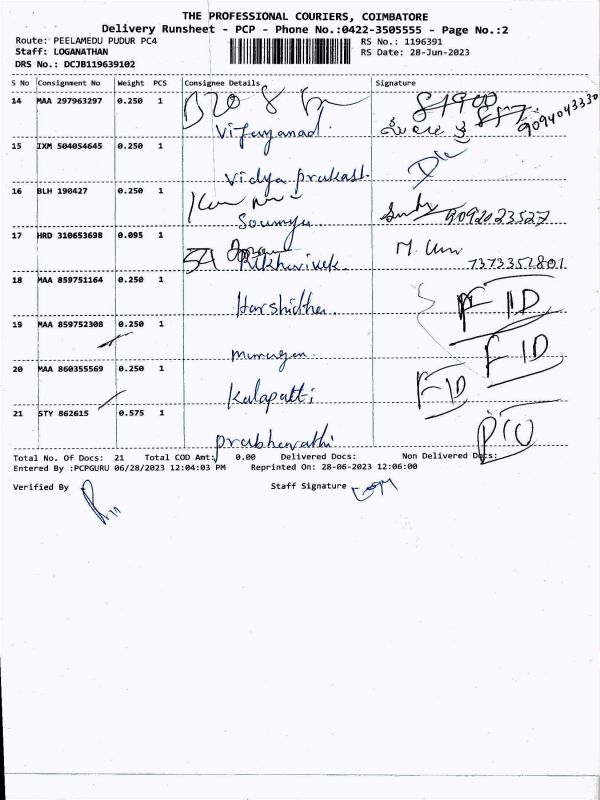 THE PROFESSIONAL COURIERS, COIMBATORE
Delivery Runsheet - PCP - Phone No.:0422-3505555 - Page No.:2
Route: PEELAMEDU PUDUR PC4 RS No.: 1196391
Staff: LOGANATHAN RS Date: 28-Jun-2023
DRS No.: DCJB119639102
S No Consignment No Weight PCS Consignee Details Signature
14 MAA 297963297 0.250 1
Vijayanad. 9094043330
15 IXM 504054645 0.250 1
Vidya prakash.
16 BLH 190427 0.250 1
Soumya 9092023527
17 HRD 310653698 0.095 1
54 Rikhvivek. 7373352801
18 MAA 859751164 0.250 1
Harshidha. FID
19 MAA 859752308 0.250 1
murugan. FID
20 MAA 860355569 0.250 1
Kalapatti FID
21 STY 862615 0.575 1
prabhavathi
Total No. Of Docs: 21 Total COD Amt: 0.00 Delivered Docs: Non Delivered Docs:
Entered By :PCPGURU 06/28/2023 12:04:03 PM Reprinted On: 28-06-2023 12:06:00
Verified By Staff Signature